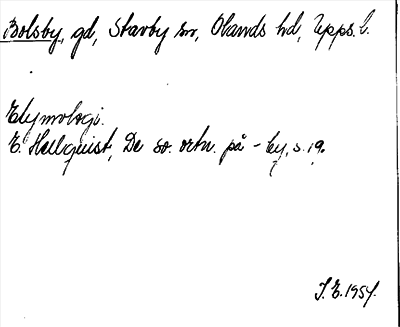 Bolsby, gd, Stavby sn, Olands hd, Upps. l.
Etymologi.
E. Hellquist, De sv. ortn. på -by, s. 19.
I. E. 1954.